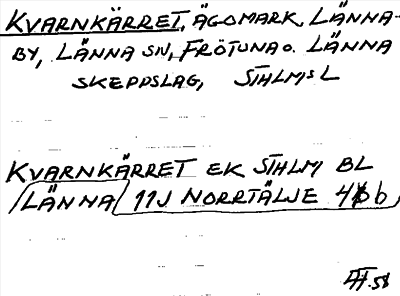 KVARNKÄRRET, ÄGOMARK, LÄNNA-
BY, LÄNNA SN, FRÖTUNA O. LÄNNA
SKEPPSLAG, STHLMS L
KVARNKÄRRET EK STHLM BL
LÄNNA 11J NORRTÄLJE 4b